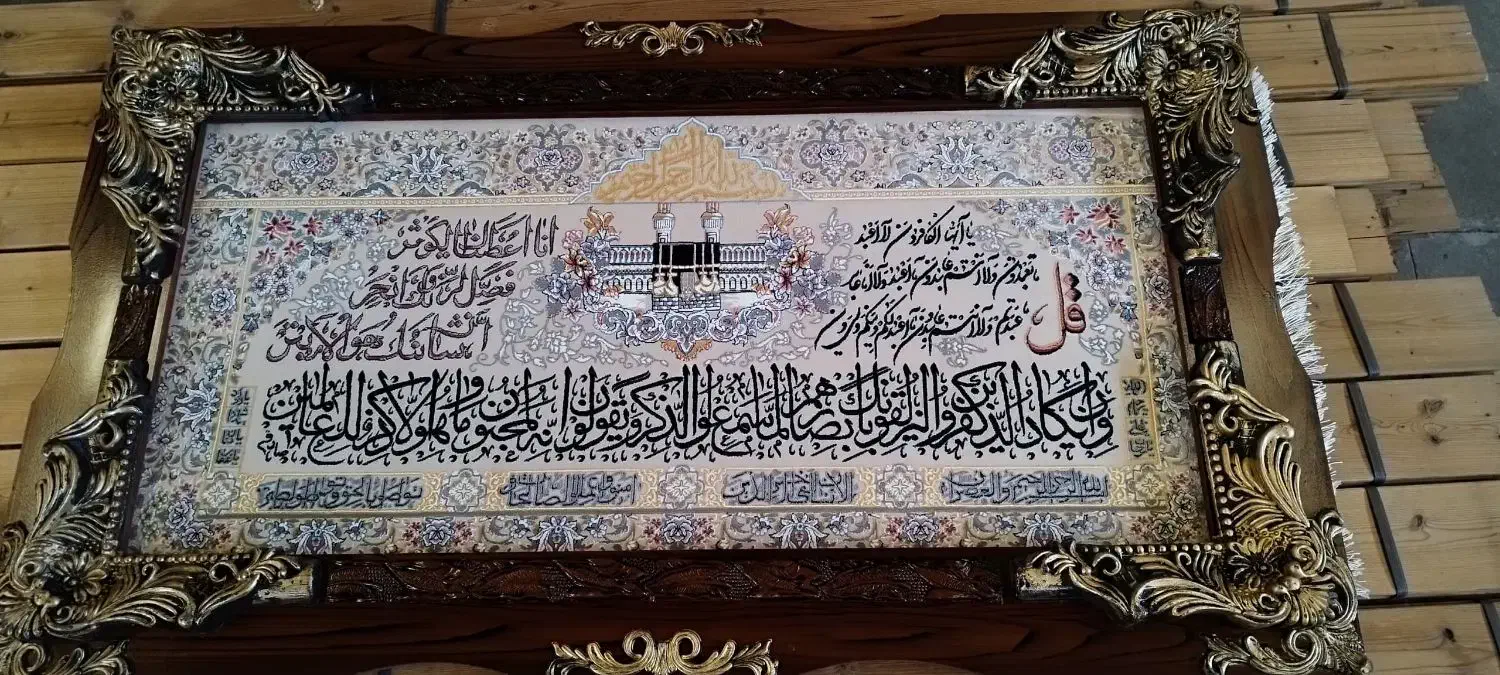 بسم الله الرحمن الرحیم
قل
یا ایها الکافرون لا اعبد
ما تعبدون ولا انتم عابدون ما اعبد ولا انا عابد
ما عبدتم ولا انتم عابدون ما اعبد لکم دینکم ولی دین
انا اعطیناک الکوثر
فصل لربک وانحر
ان شانئک هو الابتر
وان یکاد الذین کفروا لیزلقونک بابصارهم لما سمعوا الذکر ویقولون انه لمجنون وما هو الا ذکر للعالمین
بسم الله الرحمن الرحیم والعصر ان
الانسان لفی خسر الا الذین
امنوا وعملوا الصالحات
وتواصوا بالحق وتواصوا بالصبر